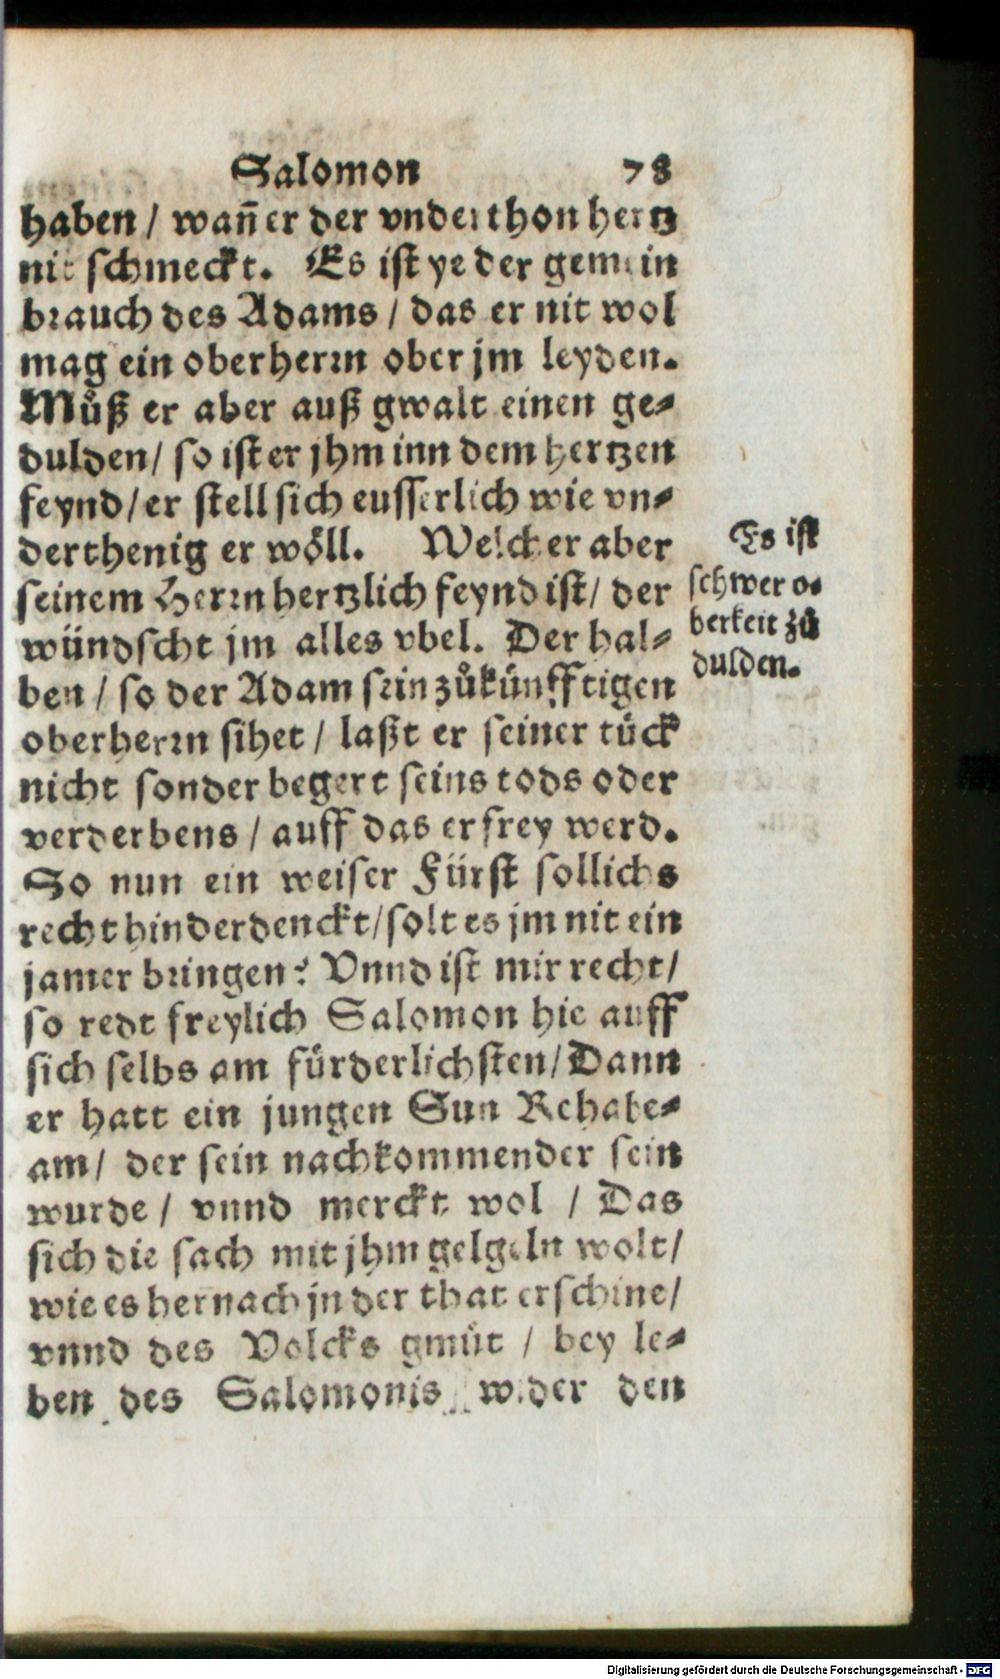 Salomon 78
haben / wañ er der vnderthon hertz
nit schmeckt. Es ist ye der gemein
brauch des Adams / das er nit wol
mag ein oberherrn ober jm leyden.
Můß er aber auß gwalt einen ge⸗
dulden / so ist er jhm inn dem hertzen
feynd / er stell sich eusserlich wie vn⸗
derthenig er wöll. Welcher aber
seinem Herrn hertzlich feynd ist / der
wündscht jm alles vbel. Der hal⸗
ben / so der Adam sein zůkünfftigen
oberherrn sihet / laßt er seiner tück
nicht sonder begert seins tods oder
verderbens / auff das er frey werd.
So nun ein weiser Fürst sollichs
recht hinderdenckt / solt es jm nit ein
jamer bringen? Vnnd ist mir recht /
so redt freylich Salomon hie auff
sich selbs am fürderlichsten / Dann
er hatt ein jungen Sun Rehabe⸗
am / der sein nachkommender sein
wurde / vnnd merckt wol / Das
sich die sach mit jhm gelgeln wolt /
wie es hernach jn der that erschine /
vnnd des Volcks gmüt / bey le⸗
ben des Salomonis wider den
Es ist
schwer o⸗
berkeit zů
dulden.
Digitalisierung gefördert durch die Deutsche Forschungsgemeinschaft - DFG